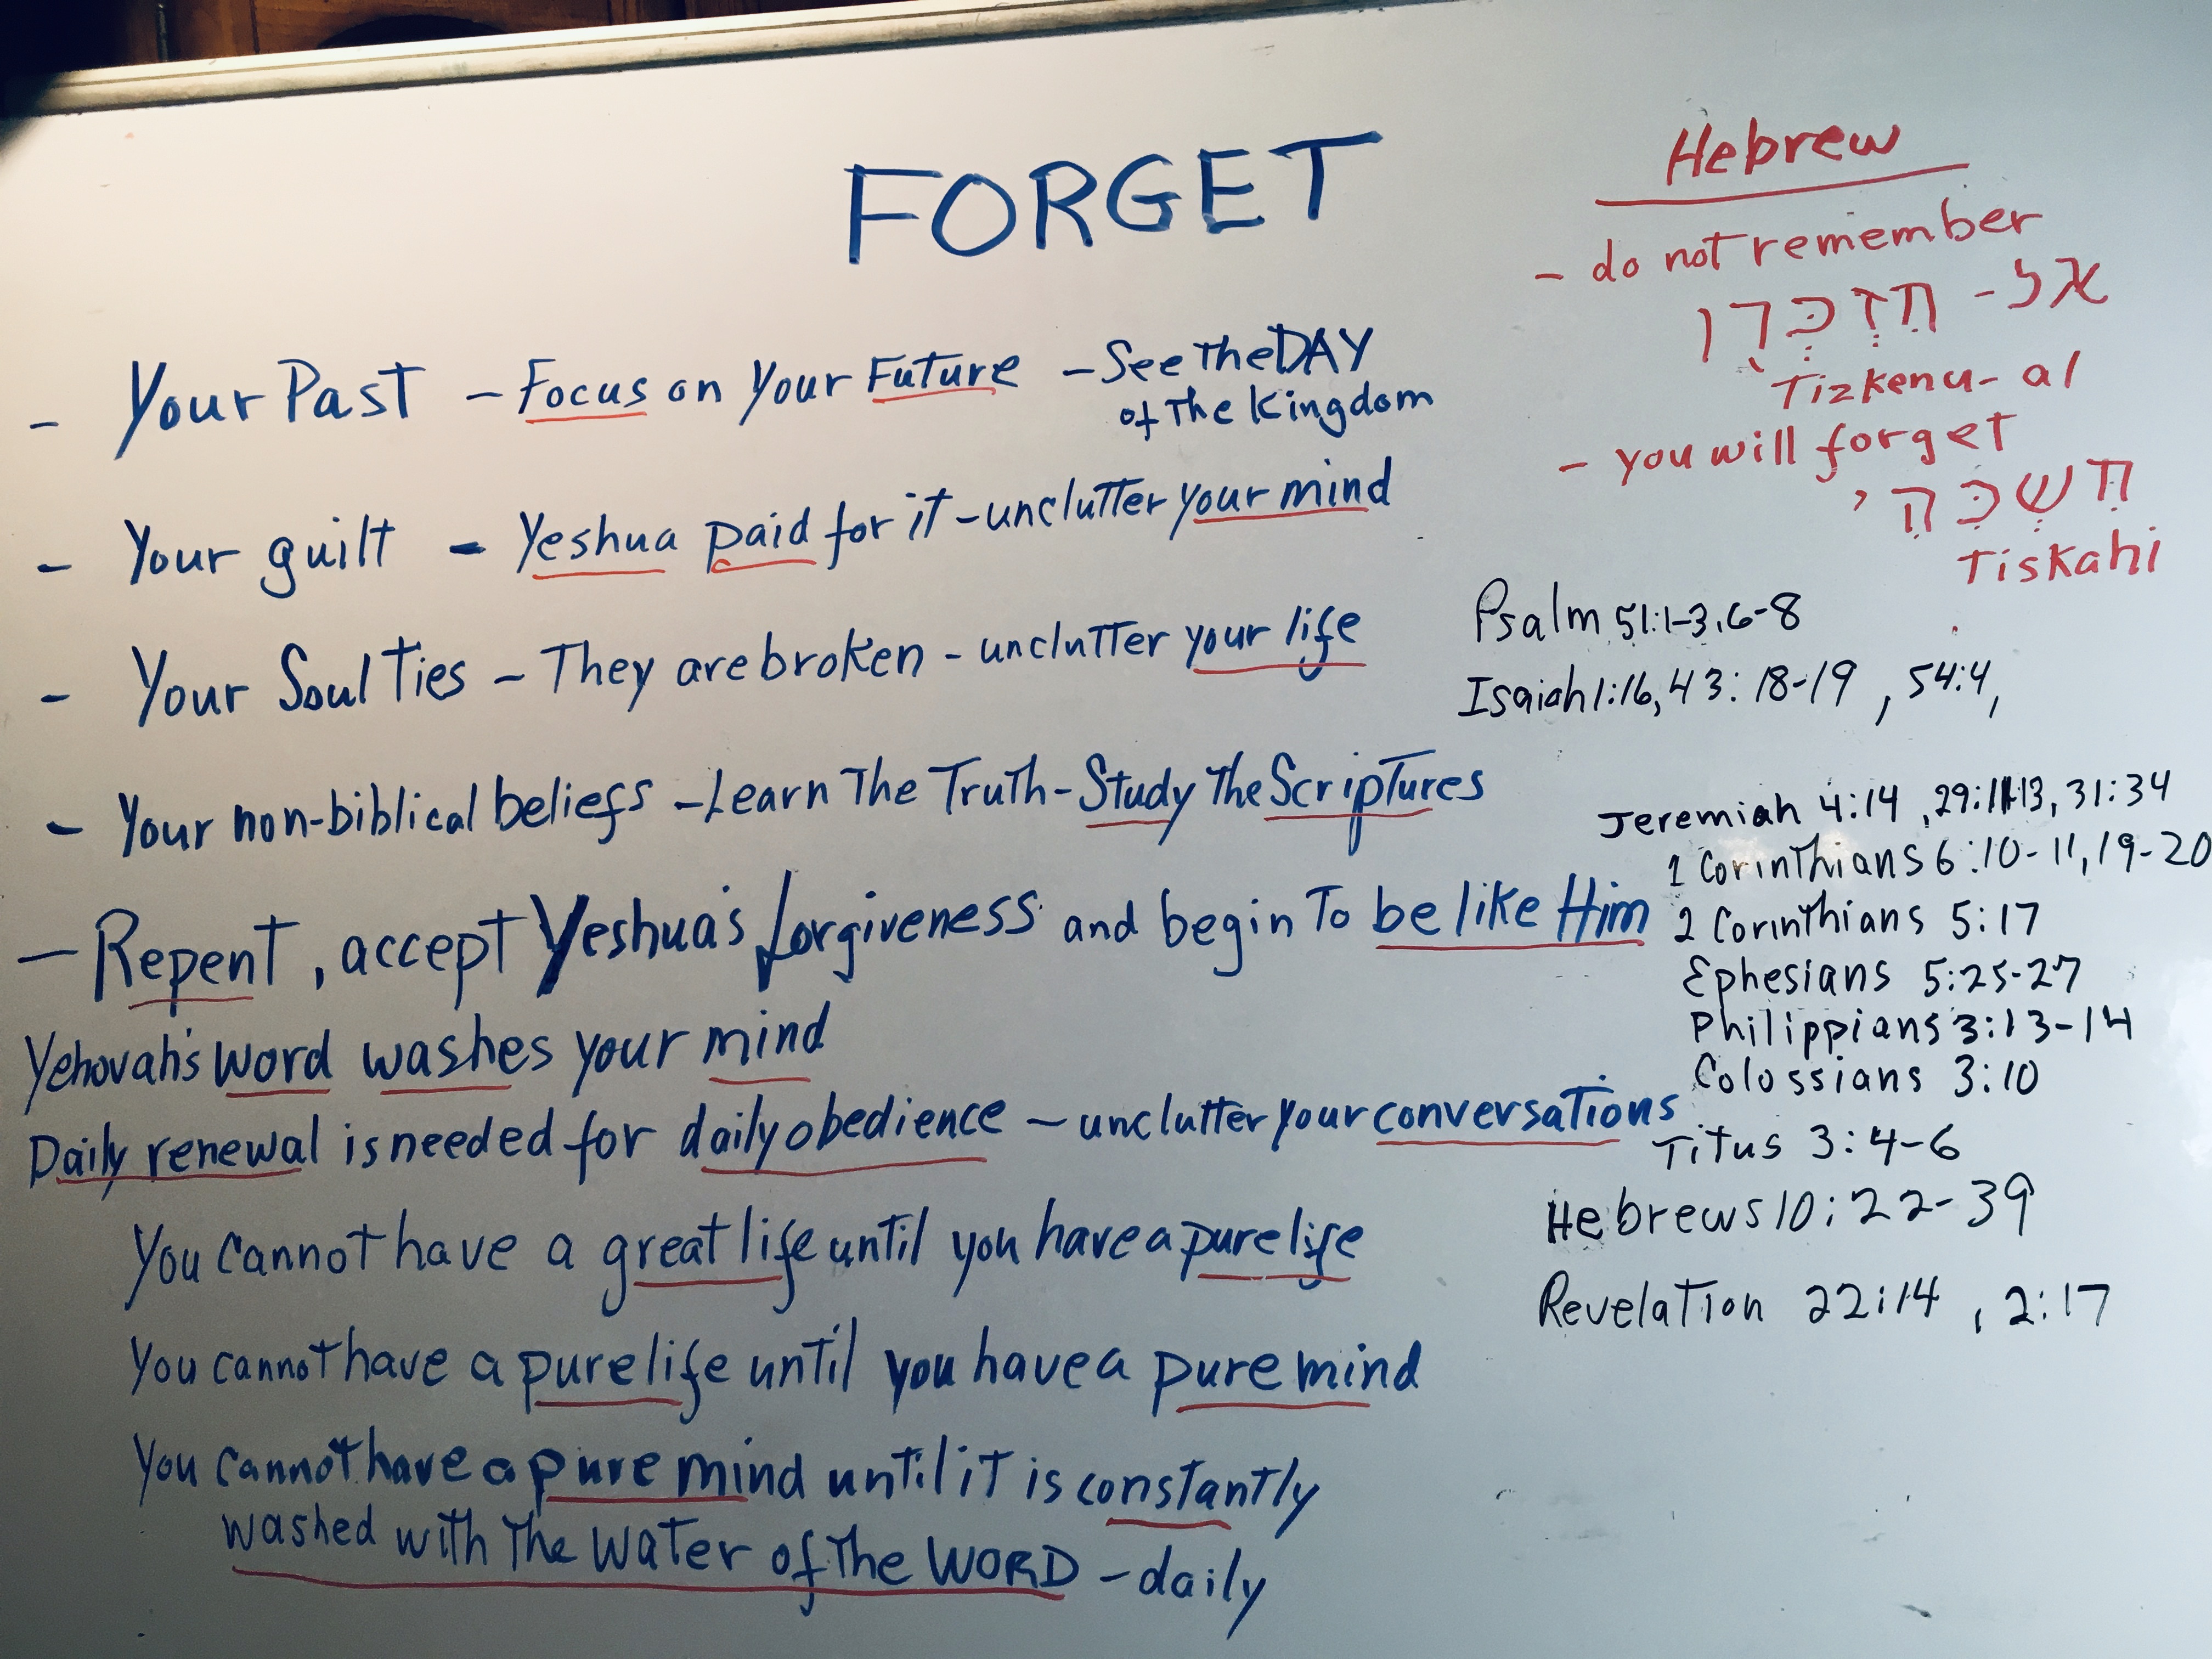 FORGET
- Your Past - Focus on Your Future - See the DAY
of the Kingdom
- Your guilt - Yeshua paid for it - unclutter your mind
- Your Soul Ties - They are broken - unclutter your life
- Your non-biblical beliefs - Learn The Truth - Study The Scriptures
- Repent, accept Yeshua's forgiveness and begin To be like Him
Yehovah's word washes your mind
Daily renewal is needed for daily obedience - unclutter your conversations
You cannot have a great life until you have a pure life
You cannot have a pure life until you have a pure mind
You cannot have a pure mind until it is constantly
washed with The water of The WORD - daily
Hebrew
- do not remember
Tizkenu- al
- you will forget
Tiskahi
Psalm 51:1-3, 6-8
Isaiah 1:16, 43:18-19, 54:4,
Jeremiah 4:14, 31:34
1 Corinthians 6:10-11, 19-20
2 Corinthians 5:17
Ephesians 5:25-27
Philippians 3:13-14
Colossians 3:10
Titus 3:4-6
Hebrews 10:22-39
Revelation 22:14, 2:17